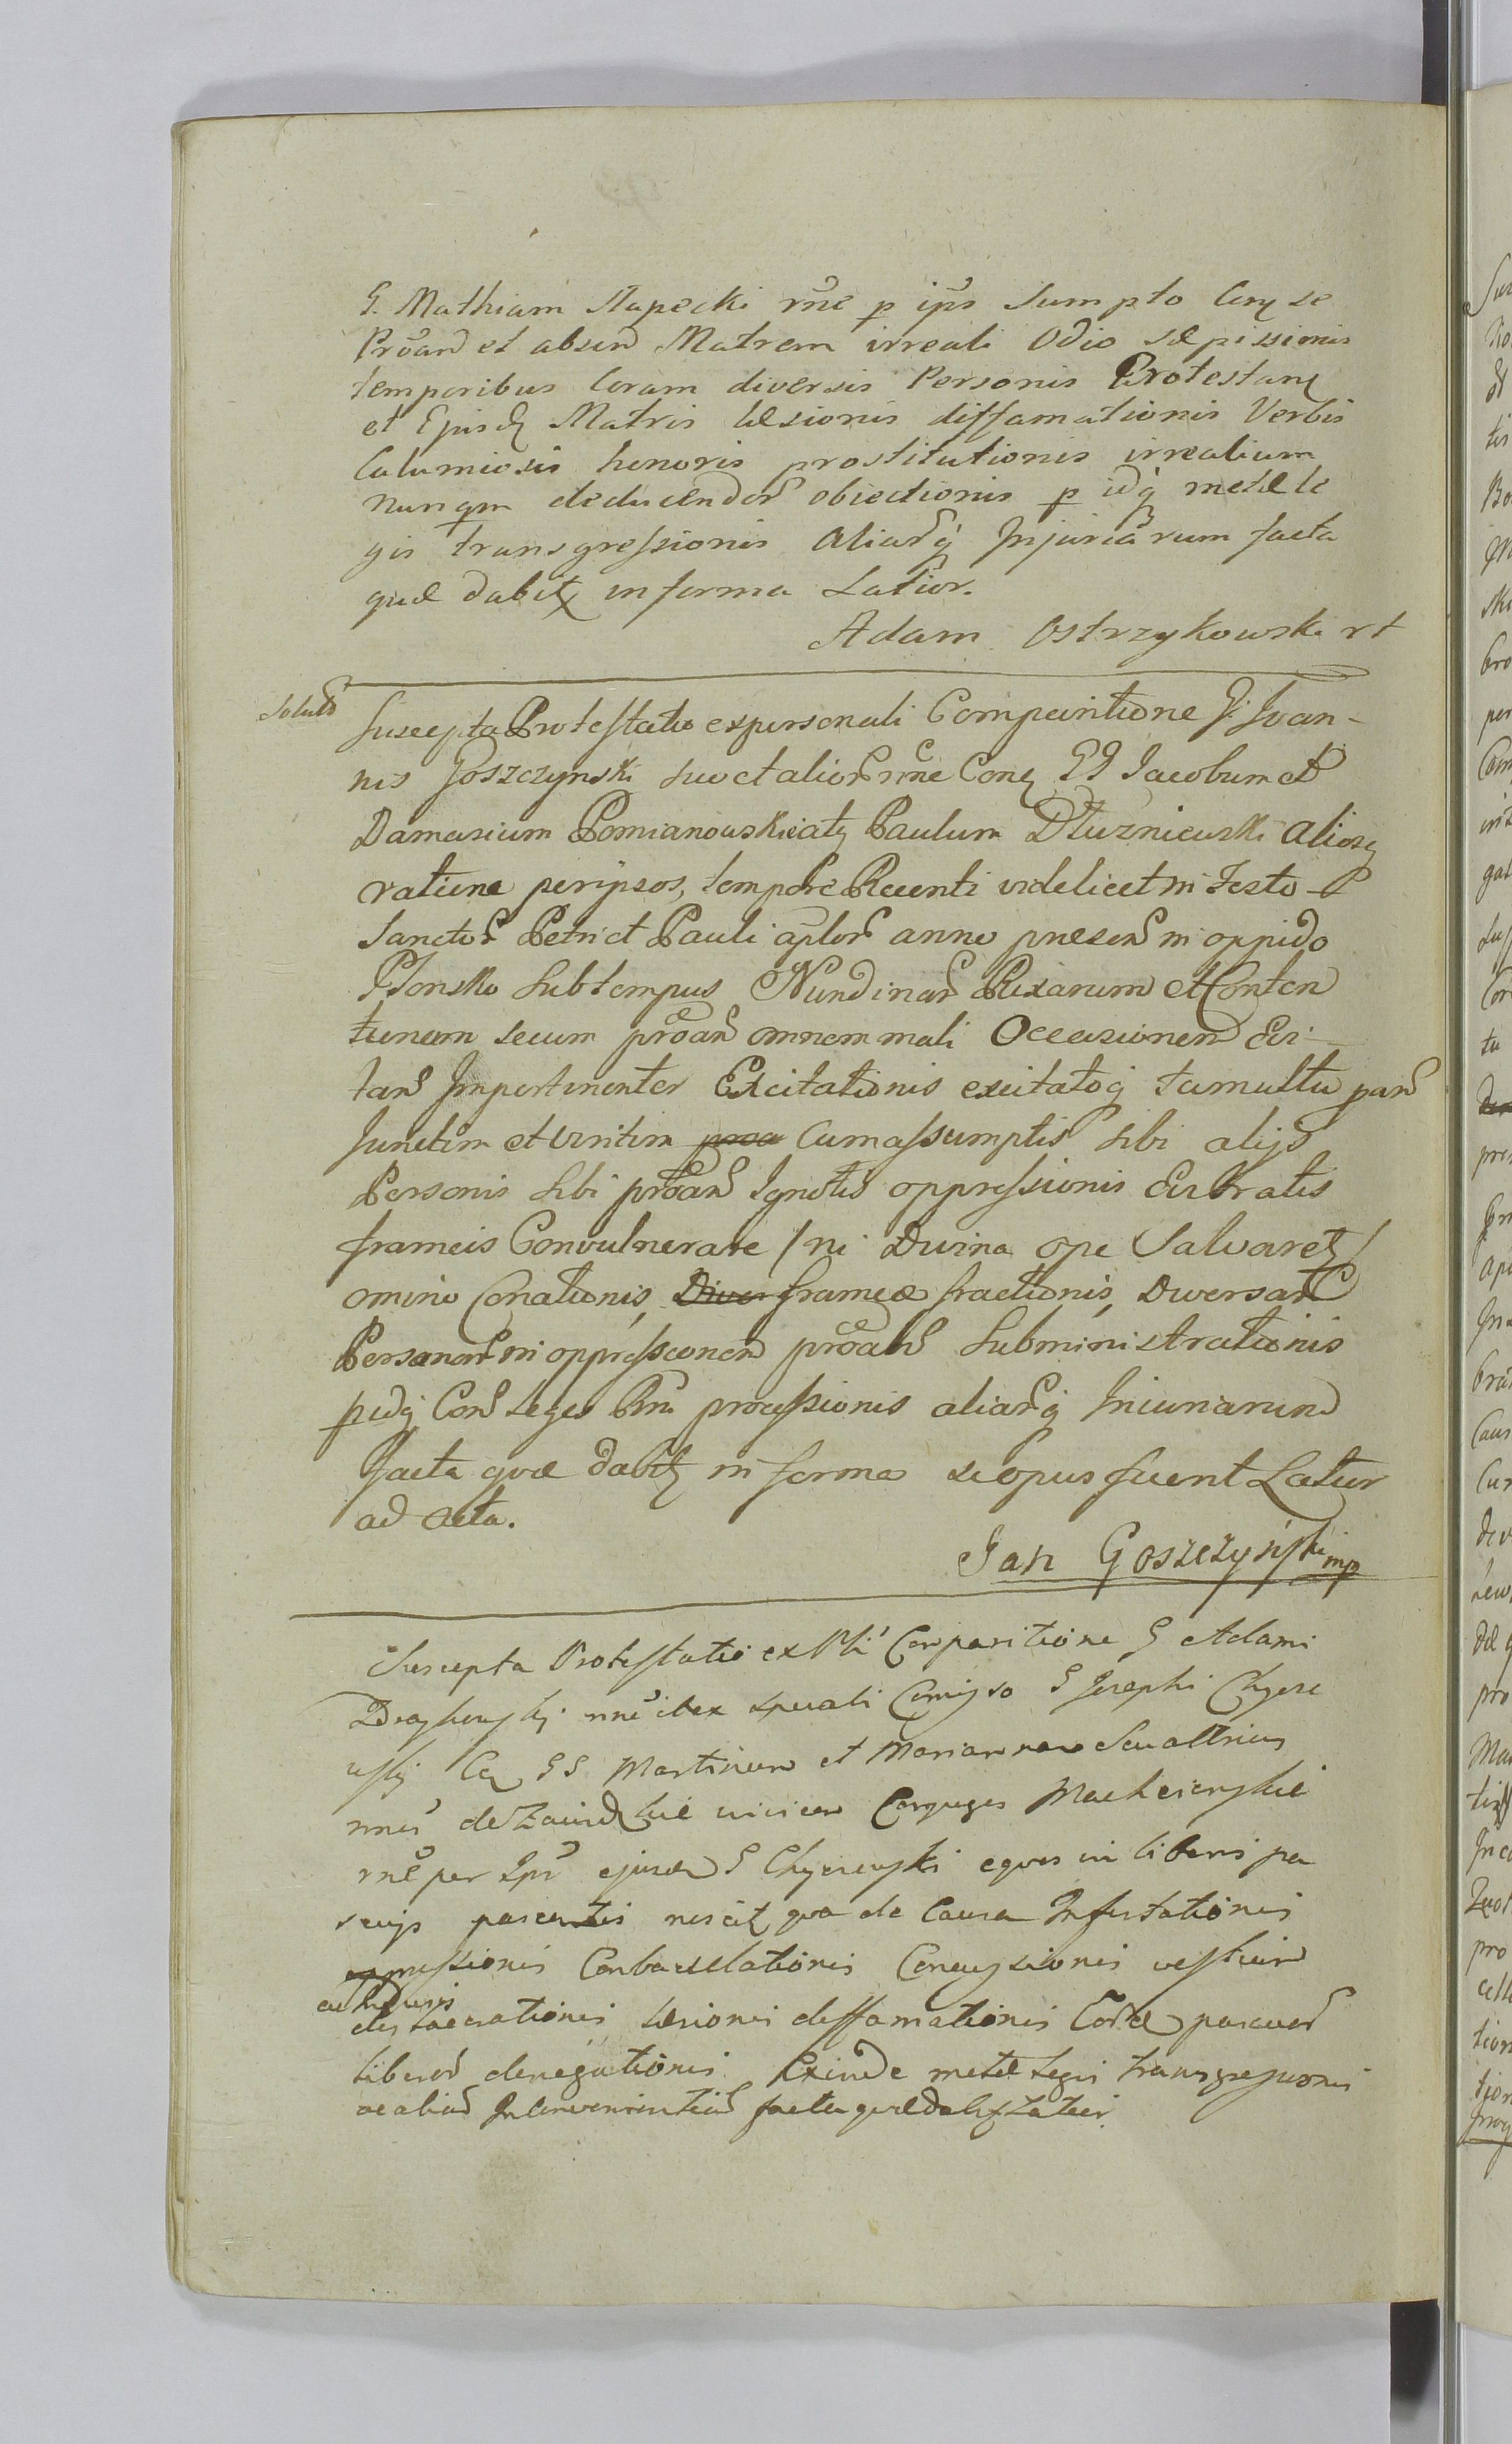 G. Mathiam Słapecki rñe p ipñ Sumpto Conq se
Prõand et absen Matrem irreali Odio sæpissimis
temporibus Coram diversis Personis Protestanq
et Ejusdq Matris læsionis diffamationis Verbis
Calumiosis honoris prostitutionis irrealium
nunqm deducendor obiectionis p idq metæ le
gis transgressionis Aliarq Injuriarum facta
quæ dabitq in forma Latior.
Adam Ostrzykowski
Solut
Suscepta Protestatio expersonali Comparitione G. Ivan-
nis Goszczynski suo et alior rñe Conq GG Iacobum et
Damasium Pomianowskie atq Paulum Dłuzniewski aliosq
ratione peripsos, tempore Recenti videlicet in Festo
Sanctor Petri et Pauli aplor anno præsen in oppido
Płonsko sub tempus Nundinar Rixarum et Conten
tionem secum proan omnem mali Occasionem Evi-
tan Impertinenter Excitationis excitatoq tumultu pan
Junctim et viritim proa cum assumptis sibi alijs
Personis sibi proan Ignotis oppressionis Evibratis
frameis Convulnerare / ni Divina ope Salvaretq /
omino Conationis, Diver frameæ fractionis, Diversar
Personar in oppressionem proan Subministrationis
pidq Con Leges Pm processionis aliarq Iniuriarum
facta quæ dabitq in forma si opus fuerit Latior
ad Acta.
Jan Goszczyński mp
Suscepta Protestatio ex Pli Comparitione G Adami
rñe et ex speali Comiso G Josephi Chyze
wskj Cq GG Martinum et Mariannam
de Conjuges
rñe per Ips ejusdem G Chyzewski equos in liberis pa
scujs pascentis nescitq qua de Causa Infestationis
oppressionis Conbacullationis Concussionis vestium
et
dislacerationis læsionis diffamationis pascuor
liberor denegationis Exinde metæ Legis transgressionis
ac aliar Inconvenientiar facta quæ dabitq Latior